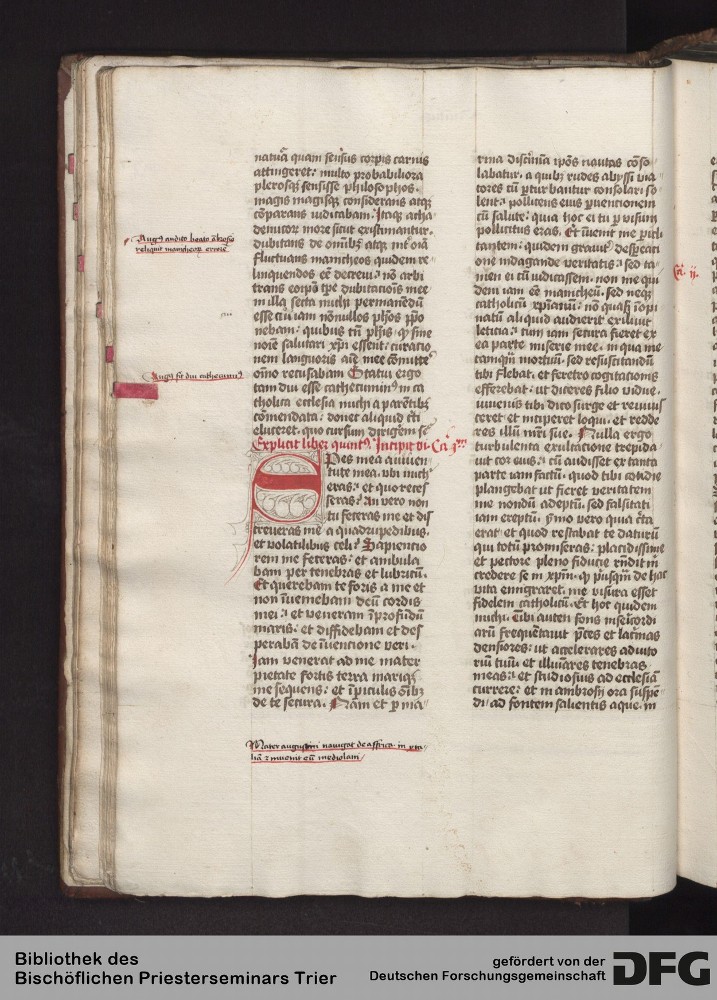 naturā quam sensus corpis carnis
attingeret: multo probabiliora
plerosq; sensisse philosophos.
magis magisq; considerans atq;
cōparans iudicabam. Itaq; acha
demicor more sicut existimantur.
dubitans de omīb; atq; int oīa
fluctuans manicheos quidem re
linquendos eē decreui: nō arbi
trans eorpm tpe dubitacōis mee
in illa secta michi permanēdū
esse cū iam nōnullos phōs ppo
nebam: quibus tn phis. qp sine
noīe salutari xpi essent: curatio
nem languoris aīe mee cōmitte
oīno recusabam Statui ergo
tam diu esse cathecumin⁹ in ca
tholica ecclesia michi a parētib;
cōmendata: donec aliquid cti
eluceret. quo cursum dirigem se
Explicit liber quint⁹. Incipit vi. Ca. pm
Spes mea a iuuen
tute mea. vbi mich
eras: et quo reces
seras: An vero non
tu feceras me et dis
creueras me a quadrupedibus.
et volatilibus celi: Sapientio
rem me feceras: et ambula
bam per tenebras et lubricū.
Et querebam te foris a me et
non īueniebam deū cordis
mei: et veneram ī profundū
maris: et diffidebam et des
perabā de īuentione veri.
Iam venerat ad me mater
pietate fortis terra mariq;
me sequens: et ī piculis oīb;
de te secura. Nam et p ma
rina discrīmina ipōs nautas cōso
labatur. a quib; rudes abyssi via
tores cū pturbantur consolari so
lent: pollicens eius puentionem
cū salute: quia hoc ei tu p visum
pollicitus eras. Et īuenit me picli
tantem: quidem grauit despacti
one indagande veritatis: sed ta
men ei cū iudicassem. non me qui
dem iam eē manicheū. sed neq;
catholicū xpianū: nō quasi īopi
natū aliquid audierit exiliuit
leticia: cum iam secura fieret ex
ea parte miserie mee. in qua me
tamquā mortuū. sed resuscitandū
tibi flebat. et feretro cogitationis
efferebat: ut diceres filio vidue.
iuuenis tibi dico surge et reuiuis
ceret et inciperet loqui. et redde
res illū mri sue. Nulla ergo
turbulenta exultatione trepida
uit cor eius: cū audisset ex tanta
parte iam factū. quod tibi cotidie
plangebat ut fieret veritatem
me nondū adeptū. sed falsitati
iam ereptū. ymo vero quia cta
erat et quod restabat te daturū
qui totū promiseras: placidissime
et pectore pleno fiducie rndit m
credere se in xpm. qp pusqm de hac
vita emigraret. me visura esset
fidelem catholicū. Et hoc quidem
michi. Tibi autem fons misericordi
arū frequētauit pces et lacrimas
densiores: ut accelerares adiuto
riū tuū. et illuīares tenebras
meas: et studiosius ad ecclesiā
currere: et in ambrosij ora suspē
di. ad fontem salientis aque. in
Ca. ij.
Aug⁹ audito beato ābrosio
reliquit manicheor errore
Aug⁹ fit diu cathecumin⁹
Mater augustini nauigat de affrica in yta
liā z inuenit eū mediolani
Bibliothek des
Bischöflichen Priesterseminars Trier
gefördert von der
Deutschen Forschungsgemeinschaft
DFG